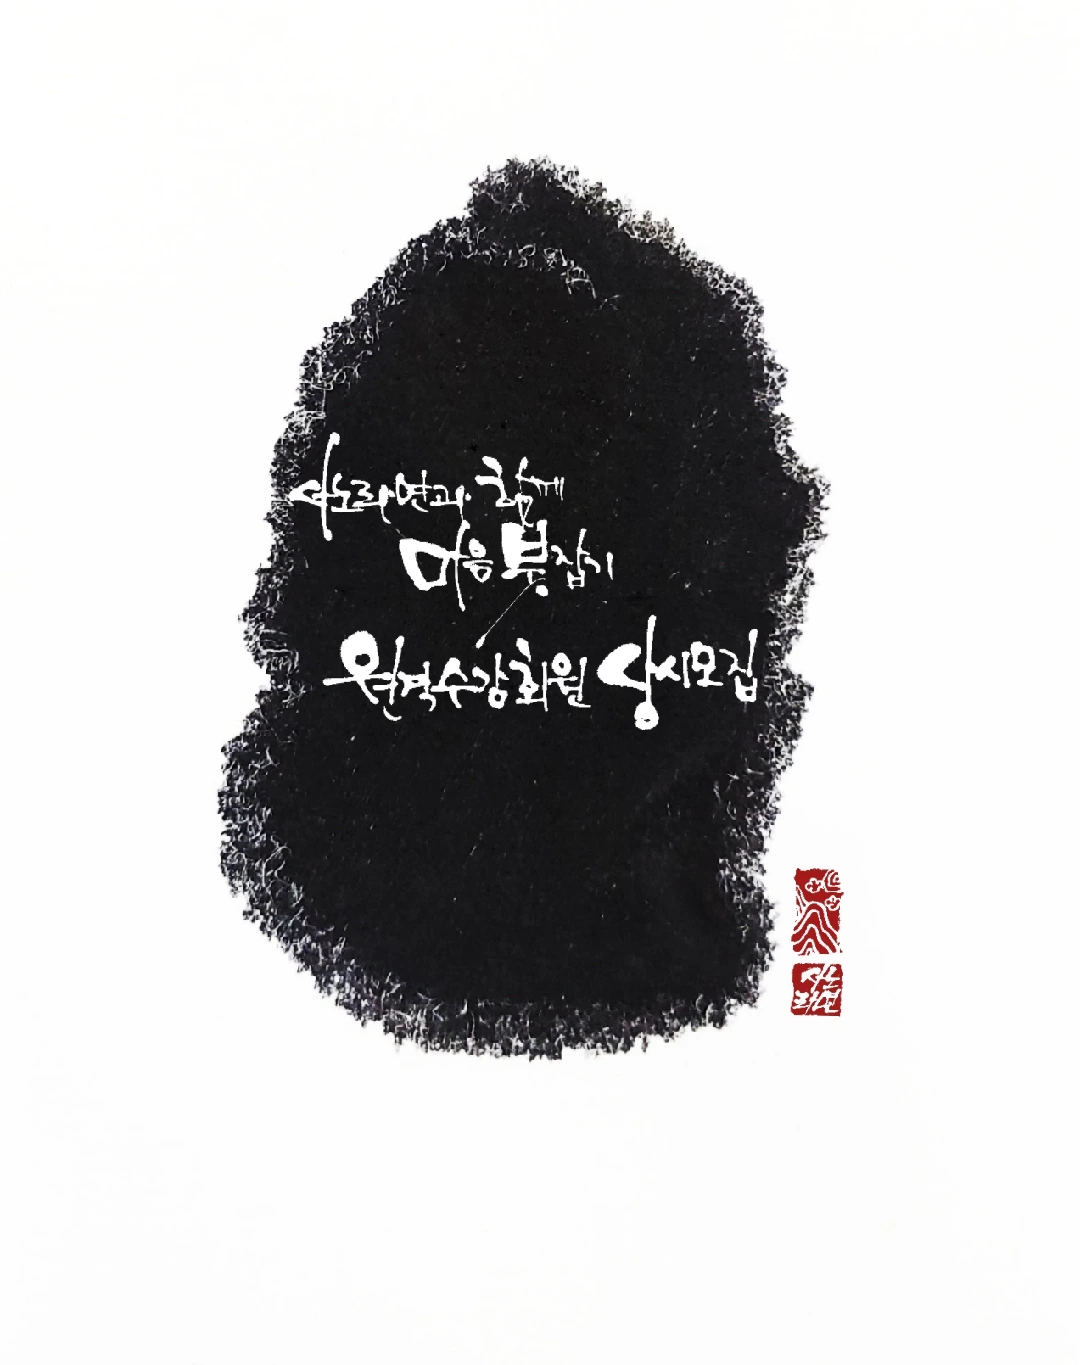 사노라연과 함께
마음 붓잡기
원격수강회원 상시모집
사노
라연